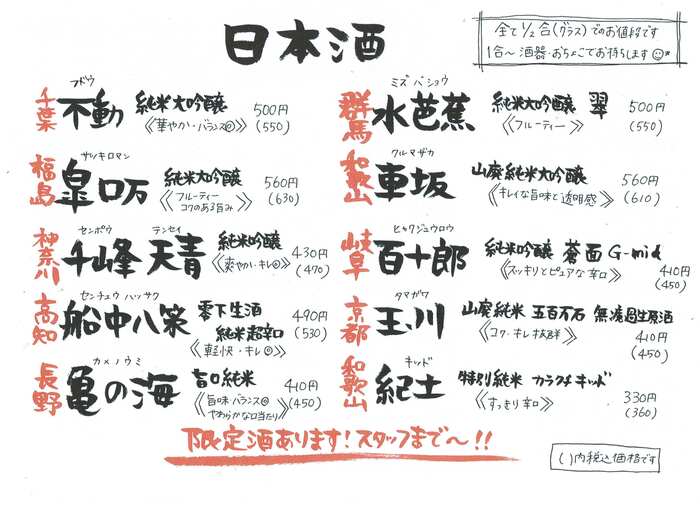 日本酒
全て1/2合(グラス)でのお値段です
1合〜酒器・おちょこでお持ちします
フドウ
千葉 不動 純米大吟醸 500円
《華やか・バランス◎》 (550)
サツキロマン
福島 皐ロ万 純米大吟醸 560円
《フルーティー (630)
コクのある旨み》
センポウ テンセイ
神奈川 千峰天青 純米吟醸 430円
《爽やか・キレ◎》 (470)
センチュウ ハッサク
高知 船中八策 零下生酒 490円
純米超辛口 (530)
《軽快・キレ◎》
カメノウミ
長野 亀の海 旨口純米 410円
《旨味バランス◎ (450)
やわらかな口当たり》
ミズバショウ
群馬 水芭蕉 純米大吟醸 翠 500円
《フルーティー》 (550)
クルマザカ
和歌山 車坂 山廃純米大吟醸 560円
《キレイな旨味と透明感》 (610)
ヒャクジュウロウ
岐阜 百十郎 純米吟醸 蒼面 G-mid
《スッキリとピュアな辛口》 410円
(450)
タマガワ
京都 玉川 山廃純米 五百万石 無濾過生原酒
《コク・キレ抜群》 410円
(450)
キッド
和歌山 紀土 特別純米 カラクチキッド
《すっきり辛口》 330円
(360)
限定酒あります!スタッフまで〜!!
( )内税込価格です